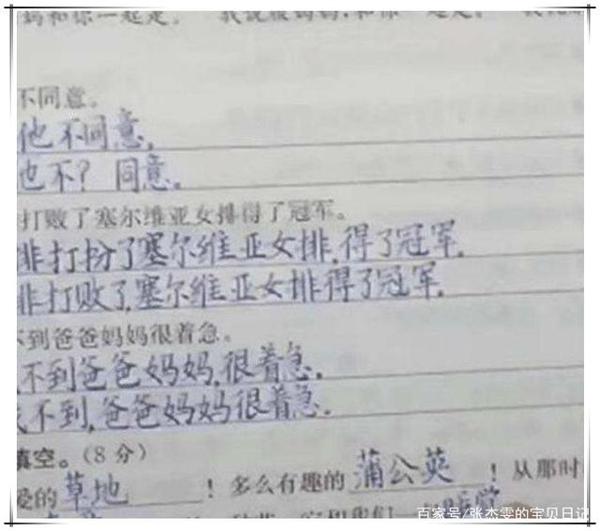 妈和你一起走。 我说服妈妈,和你一起走。
不同意。
他不同意,
也不? 同意。
打败了塞尔维亚女排得了冠军。
非打扮了塞尔维亚女排,得了冠军.
非打败了,塞尔维亚女排得了冠军.
不到爸爸妈妈很着急。
不到爸爸妈妈,很着急.
找不到,爸爸妈妈很着急.
填空。(8分)
爱的草地!多么有趣的蒲公英!从那时
百家号/张杰雯的宝贝日记